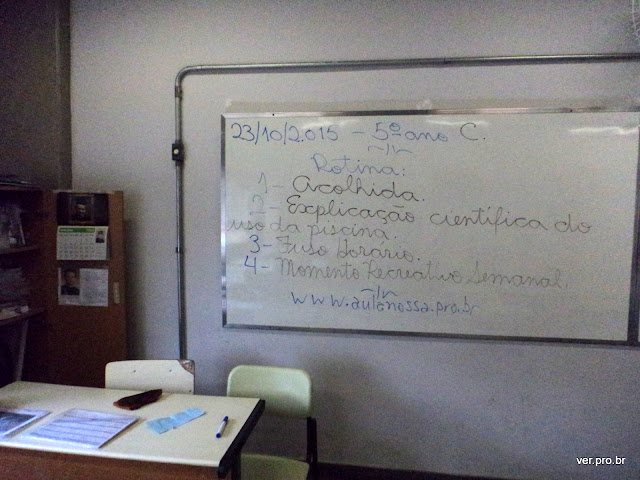 23/10/2.015 - 5º ano C.
Rotina:
1 - Acolhida.
2 - Explicação científica do
uso da piscina.
3 - Fuso Horário.
4 - Momento Recreativo Semanal.
www.aulanossa.pro.br
ver.pro.br